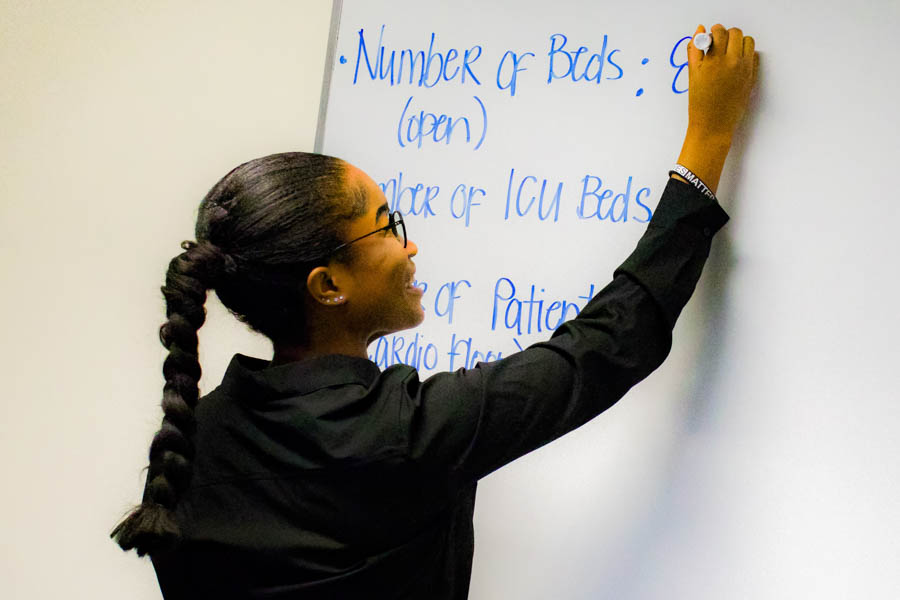 • Number of Beds: 8
(open)
mber of ICU Beds
of Patient
ardio floor)
ES MATTER